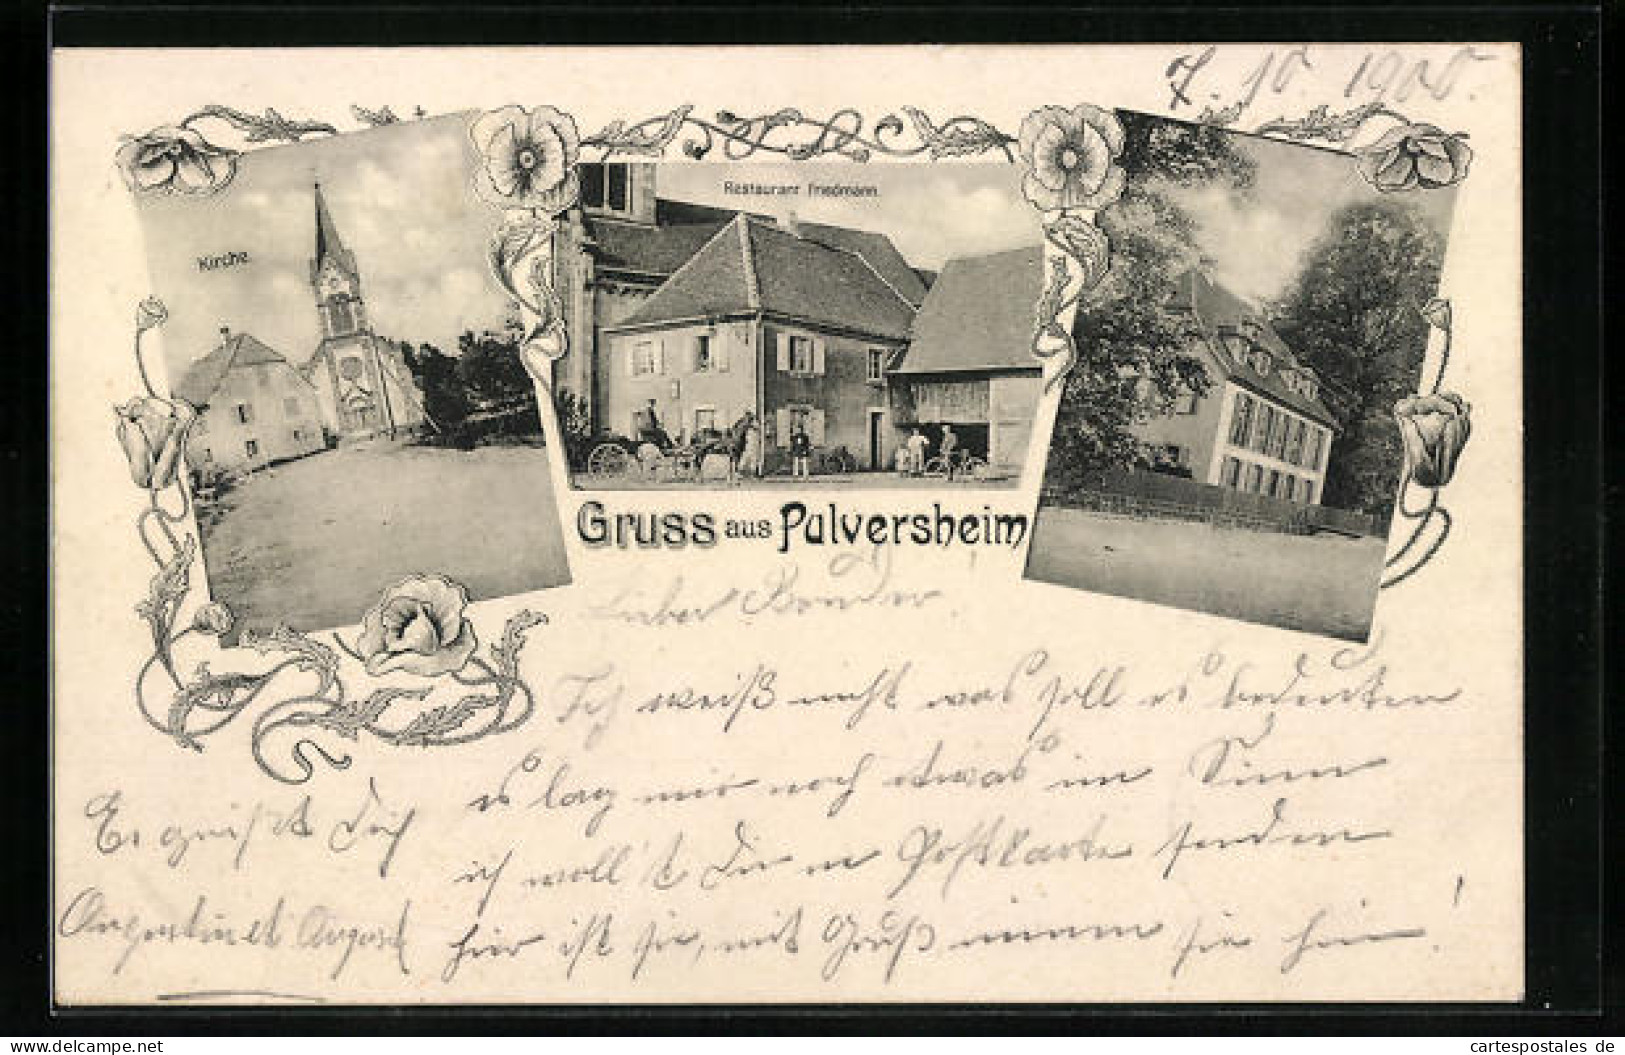 7. 10. 1900.
Kirche.
Restaurant Friedmann.
Gruss aus Pulversheim
Lieber Bruder!
Ich weiß nicht was soll es bedeuten
es lag mir noch etwas im Sinn
ich woll't Dir ne Postkarte senden
hier ist sie, mit Gruß nimm sie hin!
Es grüßt Dich
August
cartespostales de